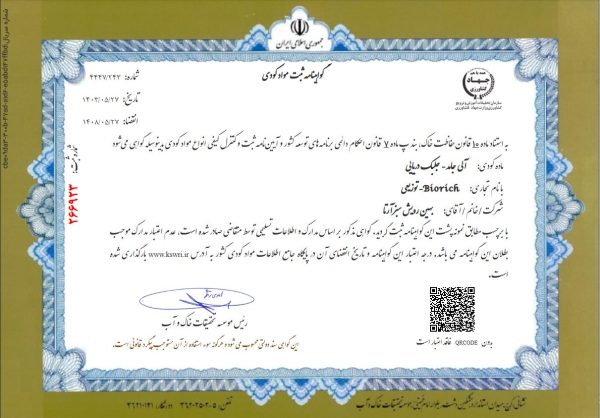 جمهوری اسلامی ایران
گواهینامه ثبت مواد کودی
همه با هم
جهاد
کشاورزی
سازمان تحقیقات، آموزش و ترویج کشاورزی
وزارت جهاد کشاورزی
شماره: ۴۴۲۷/۲۴۲
تاریخ: ۱۴۰۳/۰۵/۲۷
انقضاء: ۱۴۰۸/۰۵/۲۷
شماره ثبت:
۲۶۶۹۲۳
به استناد ماده ۱۰ قانون حفاظت خاک، بند پ ماده ۷ قانون احکام دائمی برنامه های توسعه کشور و آیین نامه ثبت و کنترل کیفی انواع مواد کودی بدینوسیله گواهی می شود
ماده کودی: آلی جامد - جلبک دریایی
با نام تجاری: Biorich- توزیعی
شرکت / خانم / آقای: بهین رویش سبز آرتا
با برچسب مطابق نمونه پشت این گواهینامه ثبت گردید. گواهی مذکور بر اساس مدارک و اطلاعات تسلیمی توسط متقاضی صادر شده است، عدم اعتبار مدارک موجب
بطلان این گواهینامه می باشد. درجه اعتبار این گواهینامه و تاریخ انقضای آن در پایگاه جامع اطلاعات مواد کودی کشور به آدرس www.kswri.ir بارگذاری شده
است.
رئیس موسسه تحقیقات خاک و آب
بدون QRCODE فاقد اعتبار است
این گواهی سند دولتی محسوب می شود و هرگونه سوء استفاده از آن مستوجب پیگرد قانونی است.